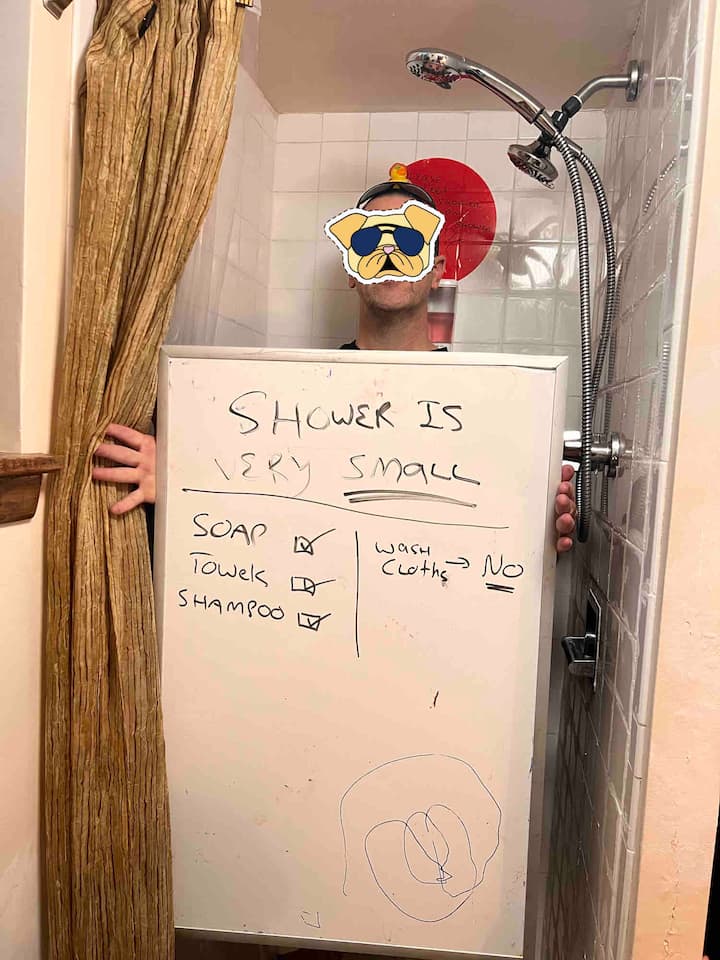 SHOWER IS
VERY SMALL
SOAP ☑
Towels ☑
SHAMPOO ☑
WASH
Cloths → NO